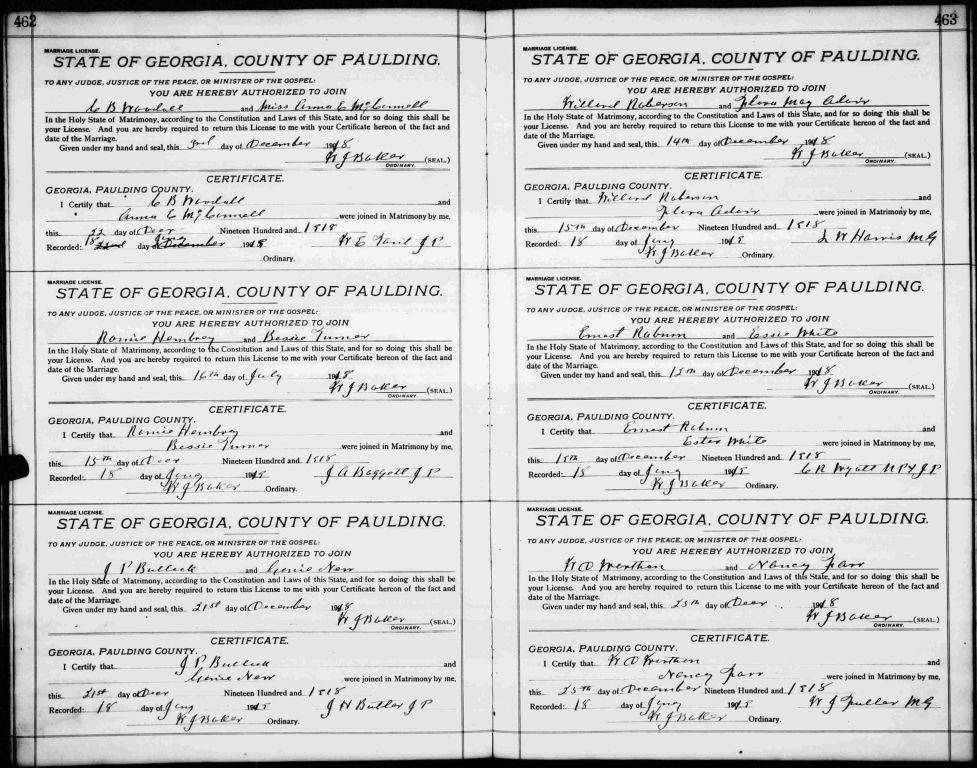 462
MARRIAGE LICENSE.
STATE OF GEORGIA, COUNTY OF PAULDING.
TO ANY JUDGE, JUSTICE OF THE PEACE, OR MINISTER OF THE GOSPEL:
YOU ARE HEREBY AUTHORIZED TO JOIN
C B Woodall and Miss Anna C McConnell
In the Holy State of Matrimony, according to the Constitution and Laws of this State, and for so doing this shall be
your License. And you are hereby required to return this License to me with your Certificate hereof of the fact and
date of the Marriage.
Given under my hand and seal, this 3rd day of December 1918
W J Baker (SEAL.)
ORDINARY.
CERTIFICATE.
GEORGIA, PAULDING COUNTY.
I Certify that C B Woodall and
Anna C McConnell were joined in Matrimony by me,
this 22 day of Decr Nineteen Hundred and 1918
Recorded: 18 day of Jany 1918 W E J P
Ordinary.
MARRIAGE LICENSE.
STATE OF GEORGIA, COUNTY OF PAULDING.
TO ANY JUDGE, JUSTICE OF THE PEACE, OR MINISTER OF THE GOSPEL:
YOU ARE HEREBY AUTHORIZED TO JOIN
Romie Hembrey and Bessie Turner
In the Holy State of Matrimony, according to the Constitution and Laws of this State, and for so doing this shall be
your License. And you are hereby required to return this License to me with your Certificate hereof of the fact and
date of the Marriage.
Given under my hand and seal, this 16th day of July 1918
W J Baker (SEAL.)
ORDINARY.
CERTIFICATE.
GEORGIA, PAULDING COUNTY.
I Certify that Romie Hembrey and
Bessie Turner were joined in Matrimony by me,
this 15th day of Decr Nineteen Hundred and 1918
Recorded: 18 day of Jany 1918 J A Baggett J P
W J Baker Ordinary.
MARRIAGE LICENSE.
STATE OF GEORGIA, COUNTY OF PAULDING.
TO ANY JUDGE, JUSTICE OF THE PEACE, OR MINISTER OF THE GOSPEL:
YOU ARE HEREBY AUTHORIZED TO JOIN
J P Bullock and Genie New
In the Holy State of Matrimony, according to the Constitution and Laws of this State, and for so doing this shall be
your License. And you are hereby required to return this License to me with your Certificate hereof of the fact and
date of the Marriage.
Given under my hand and seal, this 21st day of December 1918
W J Baker (SEAL.)
ORDINARY.
CERTIFICATE.
GEORGIA, PAULDING COUNTY.
I Certify that J P Bullock and
Genie New were joined in Matrimony by me,
this 21st day of Decr Nineteen Hundred and 1918
Recorded: 18 day of Jany 1918 J H Butler J P
W J Baker Ordinary.
463
MARRIAGE LICENSE.
STATE OF GEORGIA, COUNTY OF PAULDING.
TO ANY JUDGE, JUSTICE OF THE PEACE, OR MINISTER OF THE GOSPEL:
YOU ARE HEREBY AUTHORIZED TO JOIN
Willard Roberson and Flora May Adair
In the Holy State of Matrimony, according to the Constitution and Laws of this State, and for so doing this shall be
your License. And you are hereby required to return this License to me with your Certificate hereof of the fact and
date of the Marriage.
Given under my hand and seal, this 14th day of December 1918
W J Baker (SEAL.)
ORDINARY.
CERTIFICATE.
GEORGIA, PAULDING COUNTY.
I Certify that Willard Roberson and
Flora Adair were joined in Matrimony by me,
this 15th day of December Nineteen Hundred and 1918
Recorded: 18 day of Jany 1918 L W Harris M G
W J Baker Ordinary.
MARRIAGE LICENSE.
STATE OF GEORGIA, COUNTY OF PAULDING.
TO ANY JUDGE, JUSTICE OF THE PEACE, OR MINISTER OF THE GOSPEL:
YOU ARE HEREBY AUTHORIZED TO JOIN
Ernest Raburn and Essie White
In the Holy State of Matrimony, according to the Constitution and Laws of this State, and for so doing this shall be
your License. And you are hereby required to return this License to me with your Certificate hereof of the fact and
date of the Marriage.
Given under my hand and seal, this day of December 1918
W J Baker (SEAL.)
ORDINARY.
CERTIFICATE.
GEORGIA, PAULDING COUNTY.
I Certify that Ernest Raburn and
Ester White were joined in Matrimony by me,
this 15th day of December Nineteen Hundred and 1918
Recorded: 18 day of Jany 1918 C R Wyatt N P & J P
W J Baker Ordinary.
MARRIAGE LICENSE.
STATE OF GEORGIA, COUNTY OF PAULDING.
TO ANY JUDGE, JUSTICE OF THE PEACE, OR MINISTER OF THE GOSPEL:
YOU ARE HEREBY AUTHORIZED TO JOIN
W O Worthan and Nancy Farr
In the Holy State of Matrimony, according to the Constitution and Laws of this State, and for so doing this shall be
your License. And you are hereby required to return this License to me with your Certificate hereof of the fact and
date of the Marriage.
Given under my hand and seal, this 25th day of Decr 1918
W J Baker (SEAL.)
ORDINARY.
CERTIFICATE.
GEORGIA, PAULDING COUNTY.
I Certify that W O Worthan and
Nancy Farr were joined in Matrimony by me,
this 25th day of December Nineteen Hundred and 1918
Recorded: 18 day of Jany 1918 W J Fuller M G
W J Baker Ordinary.